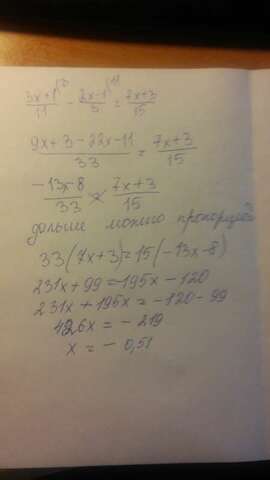 (3x+1)/11 \3 - (2x-1)/3 \11 = (7x+3)/15
(9x+3-22x-11)/33 = (7x+3)/15
(-13x-8)/33 × (7x+3)/15
дальше можно пропорцией
33(7x+3)=15(-13x-8)
231x+99=-195x-120
231x+195x=-120-99
426x=-219
x=-0,51